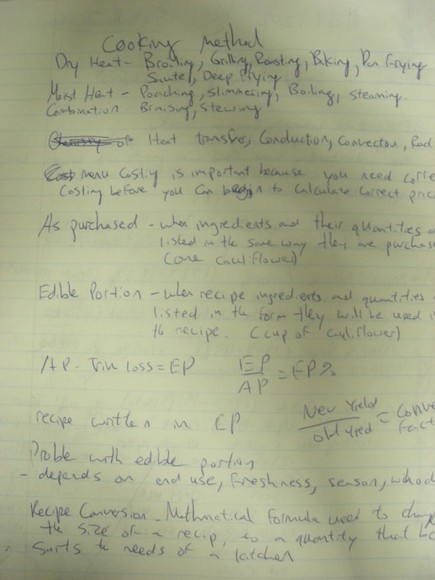 Cooking method
Dry Heat - Broiling, Grilling, Roasting, Baking, Pan Frying
Sautee, Deep Frying
Moist Heat - Poaching, Simmering, Boiling, steaming.
Combination Braising, stewing
of Heat transfer, Conduction, Convection, Rad
menu Costing is important because you need corre
Costing before you can begin to calculate correct pric
As purchased - when ingredients and their quantities a
listed in the same way they are purchase
(one cauliflower)
Edible Portion - when recipe ingredients and quantities
listed in the form they will be used i
the recipe. (cup of cauliflower)
AP - Trim loss = EP EP/AP = EP%
recipe written in EP New Yield/old Yield = Conve Fact
Proble with edible portion
- depends on end use, freshness, season,
Recipe Conversion - Mathmatical formula used to chang
the size of a recip, to a quantity that
suits the needs of a kitchen